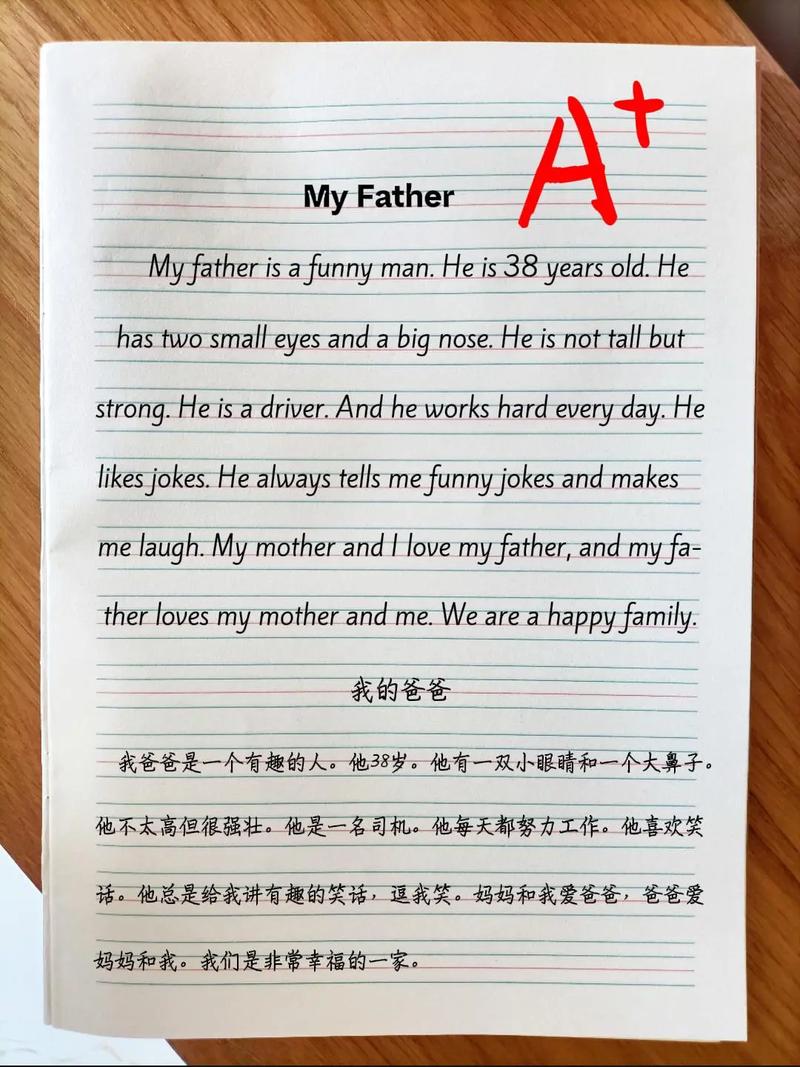 A+
My Father
My father is a funny man. He is 38 years old. He
has two small eyes and a big nose. He is not tall but
strong. He is a driver. And he works hard every day. He
likes jokes. He always tells me funny jokes and makes
me laugh. My mother and I love my father, and my fa-
ther loves my mother and me. We are a happy family.
我的爸爸
我爸爸是一个有趣的人。他38岁。他有一双小眼睛和一个大鼻子。
他不太高但很强壮。他是一名司机。他每天都努力工作。他喜欢笑
话。他总是给我讲有趣的笑话，逗我笑。妈妈和我爱爸爸，爸爸爱
妈妈和我。我们是非常幸福的一家。